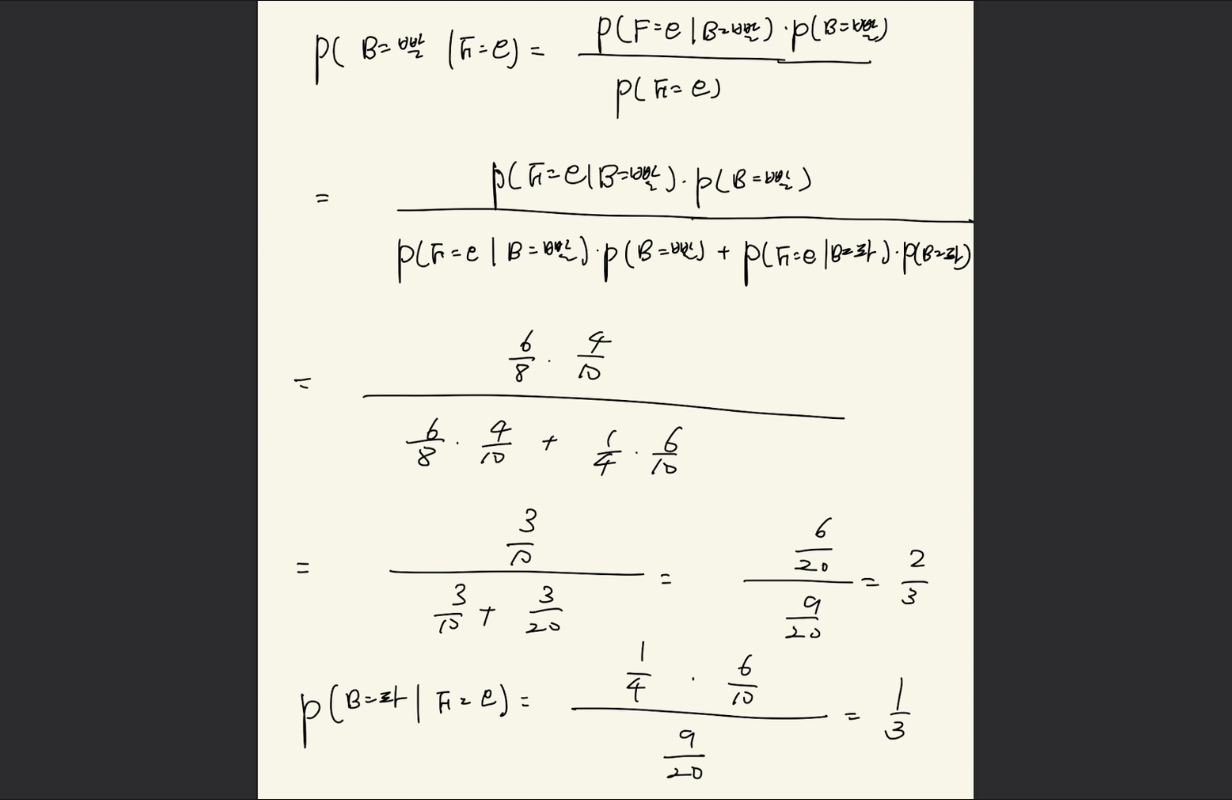 p( B=빨 | F=e) = p(F=e | B=빨) · p(B=빨) / p(F=e)
= p(F=e | B=빨) · p(B=빨) / p(F=e | B=빨) · p(B=빨) + p(F=e | B=파) · p(B=파)
= 6/8 · 4/10 / 6/8 · 4/10 + 1/4 · 6/10
= 3/10 / 3/10 + 3/20 = 6/20 / 9/20 = 2/3
p(B=파 | F=e) = 1/4 · 6/10 / 9/20 = 1/3